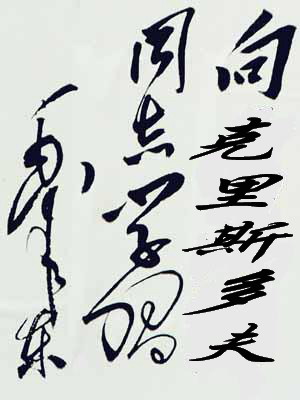 向克里斯多夫
同志学习
毛泽东